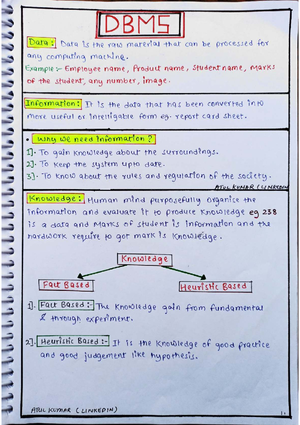 DBMS
Data:- Data is the raw material that can be processed for
any computing machine.
Example:- Employee name, Product name, Student name, Marks
of the student, any number, image.
Information:- It is the data that has been converted into
more useful or intelligible form eg. report card sheet.
• Why we need Information?
1]- To gain knowledge about the surroundings.
2]- To keep the system upto date.
3]- To know about the rules and regulation of the society.
ATUL KUMAR (LINKEDIN)
Knowledge:- Human mind purposefully organise the
information and evaluate it to produce knowledge eg 238
is a data and Marks of student is information and the
hardwork require to got mark is Knowledge.
Knowledge
Fact Based
Heuristic Based
1]. Fact Based:- The knowledge gain from fundamental
& through experiment.
2]- Heuristic Based:- It is the knowledge of good practice
and good judgement like hypothesis.
ATUL KUMAR (LINKEDIN)